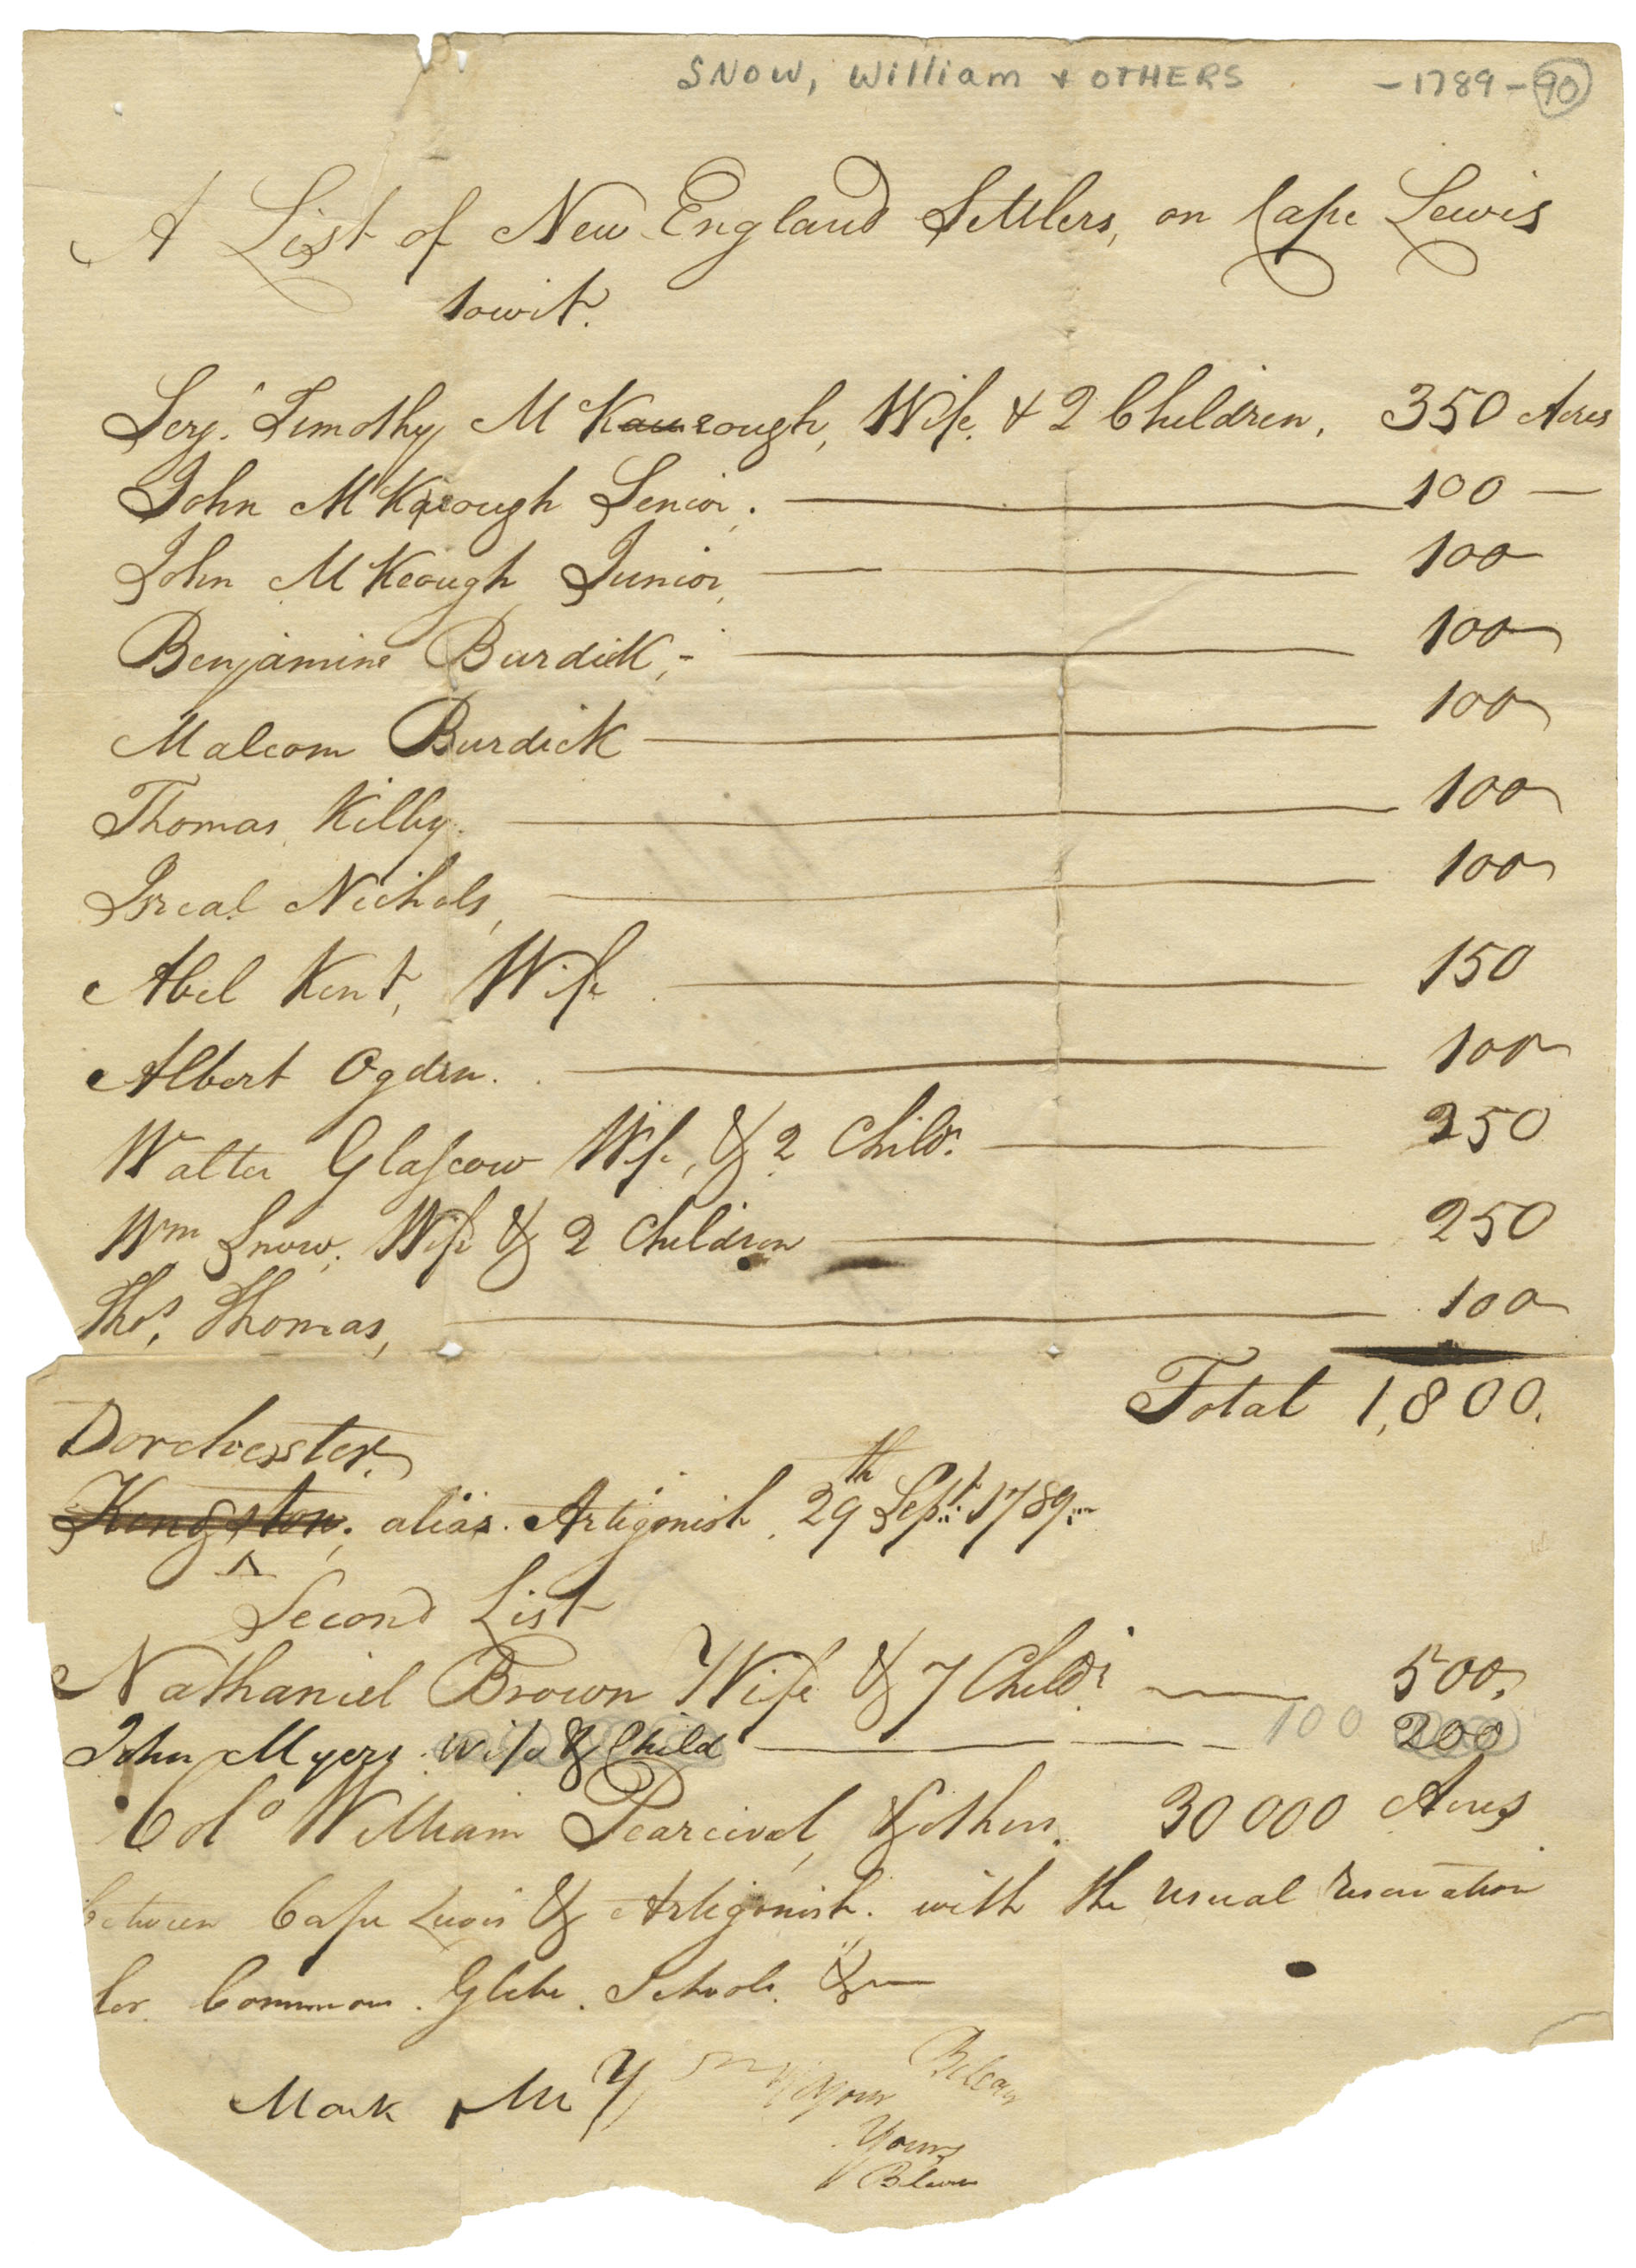 SNOW, William & OTHERS -1789-90
A List of New England Settlers, on Cape Lewis
towit.
Serj.t Timothy McKeough, Wife, & 2 Children, 350 Acres
John McKeough Senior. 100
John McKeough Junior, 100
Benjamine Burdick, 100
Malcom Burdick 100
Thomas Kilby. 100
Isreal Nichols, 100
Abel Kent, Wife 150
Albert Ogden. 100
Walter Glascow Wife, & 2 Childn. 250
Wm Snow, Wife & 2 Children 250
Thos. Thomas, 100
Total 1,800.
Dorchesster.
Kingston, alias Artigonish, 29th Sept. 1789
Second List
Nathaniel Brown Wife & 7 Childr 500,
John Myers Wife & Child 100 200
Colo William Pearcival, & others. 30000 Acres
between Cape Lewis & Artigonish. with the usual reservation
for Common. Glebe. Schools. &
Mark Mc
Your
Yours